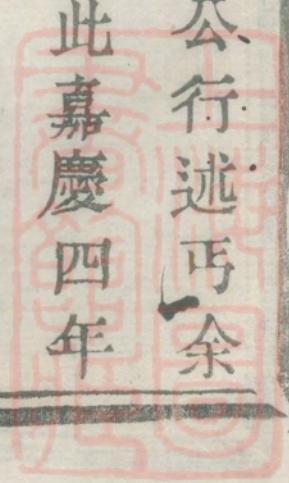 公行述丐余
此嘉慶四年